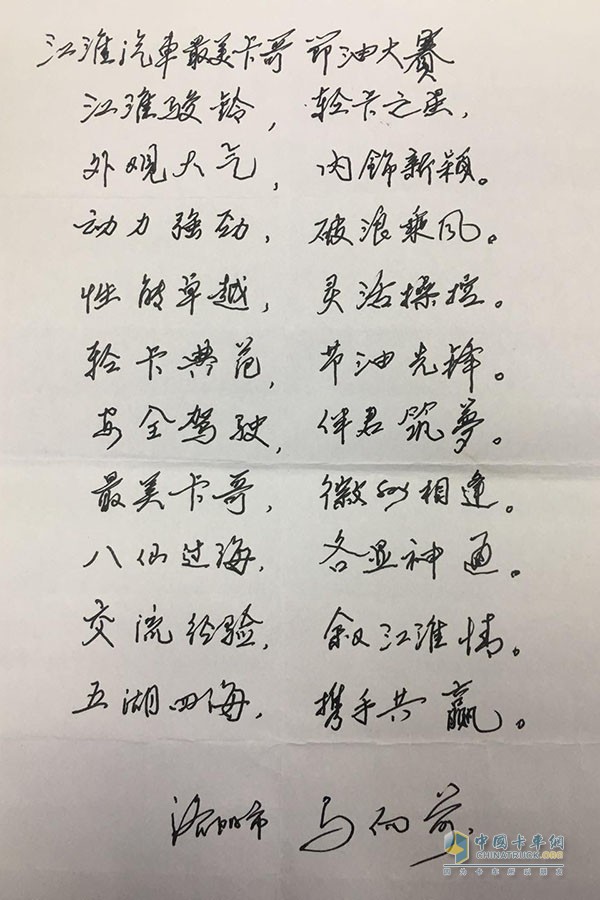 江淮汽車最美卡哥 节油大賽
江淮骏铃，轻卡之星，
外观大气，内飾新颖。
动力强劲，破浪乘风。
性能卓越，灵活操控。
轻卡典范，节油先锋。
安全驾驶，伴君筑夢。
最美卡哥，徽州相逢。
八仙过海，各显神通。
交流经验，叙江淮情。
五湖四海，携手共赢。
洛阳市 马向前
中國卡車網
CHINATRUCK.ORG
因为卡车所以朋友